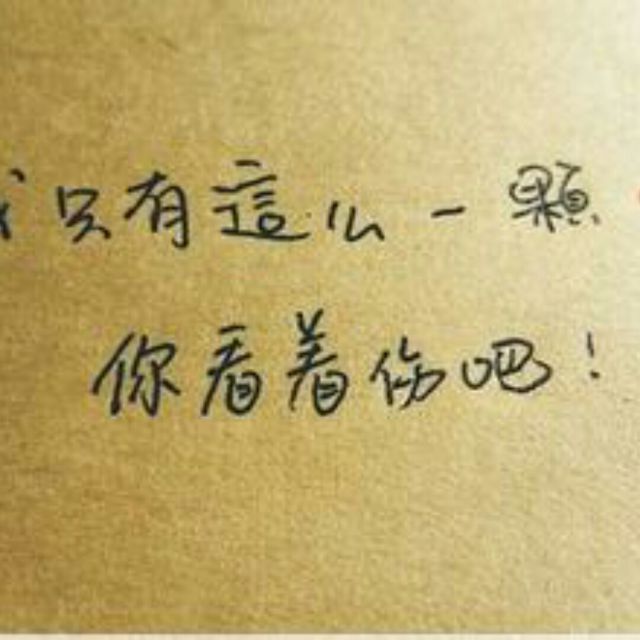 我只有這么一顆
你看着伤吧!